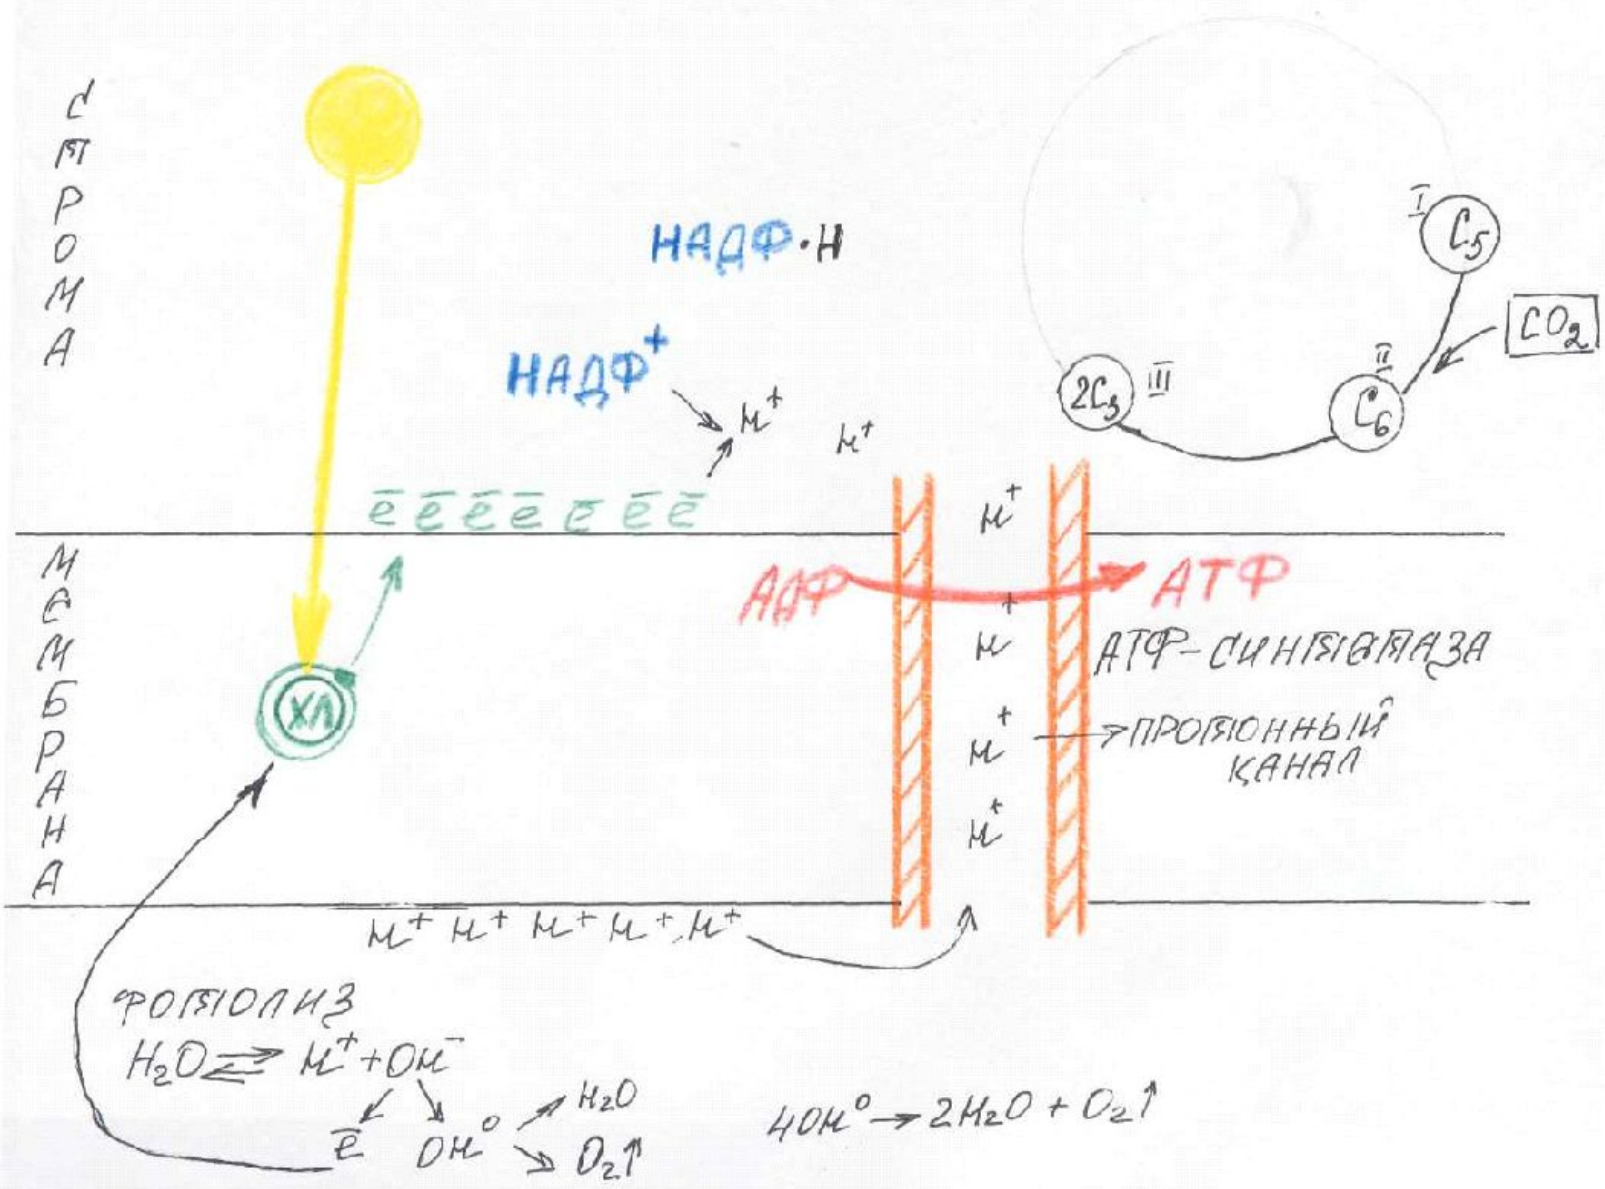 СТРОМА
НАДФ·Н
НАДФ⁺
H⁺
H⁺
I
C₅
CO₂
II
C₆
2C₃
III
ē ē ē ē ē ē ē
H⁺
МЕМБРАНА
АДФ
АТФ
H⁺
АТФ-СИНТЕТАЗА
ХЛ
H⁺
ПРОТОННЫЙ
КАНАЛ
H⁺
H⁺ H⁺ H⁺ H⁺ H⁺
ФОТОЛИЗ
H₂O ⇌ H⁺ + OH⁻
ē OH⁰
H₂O
O₂↑
4OH⁰ → 2H₂O + O₂↑